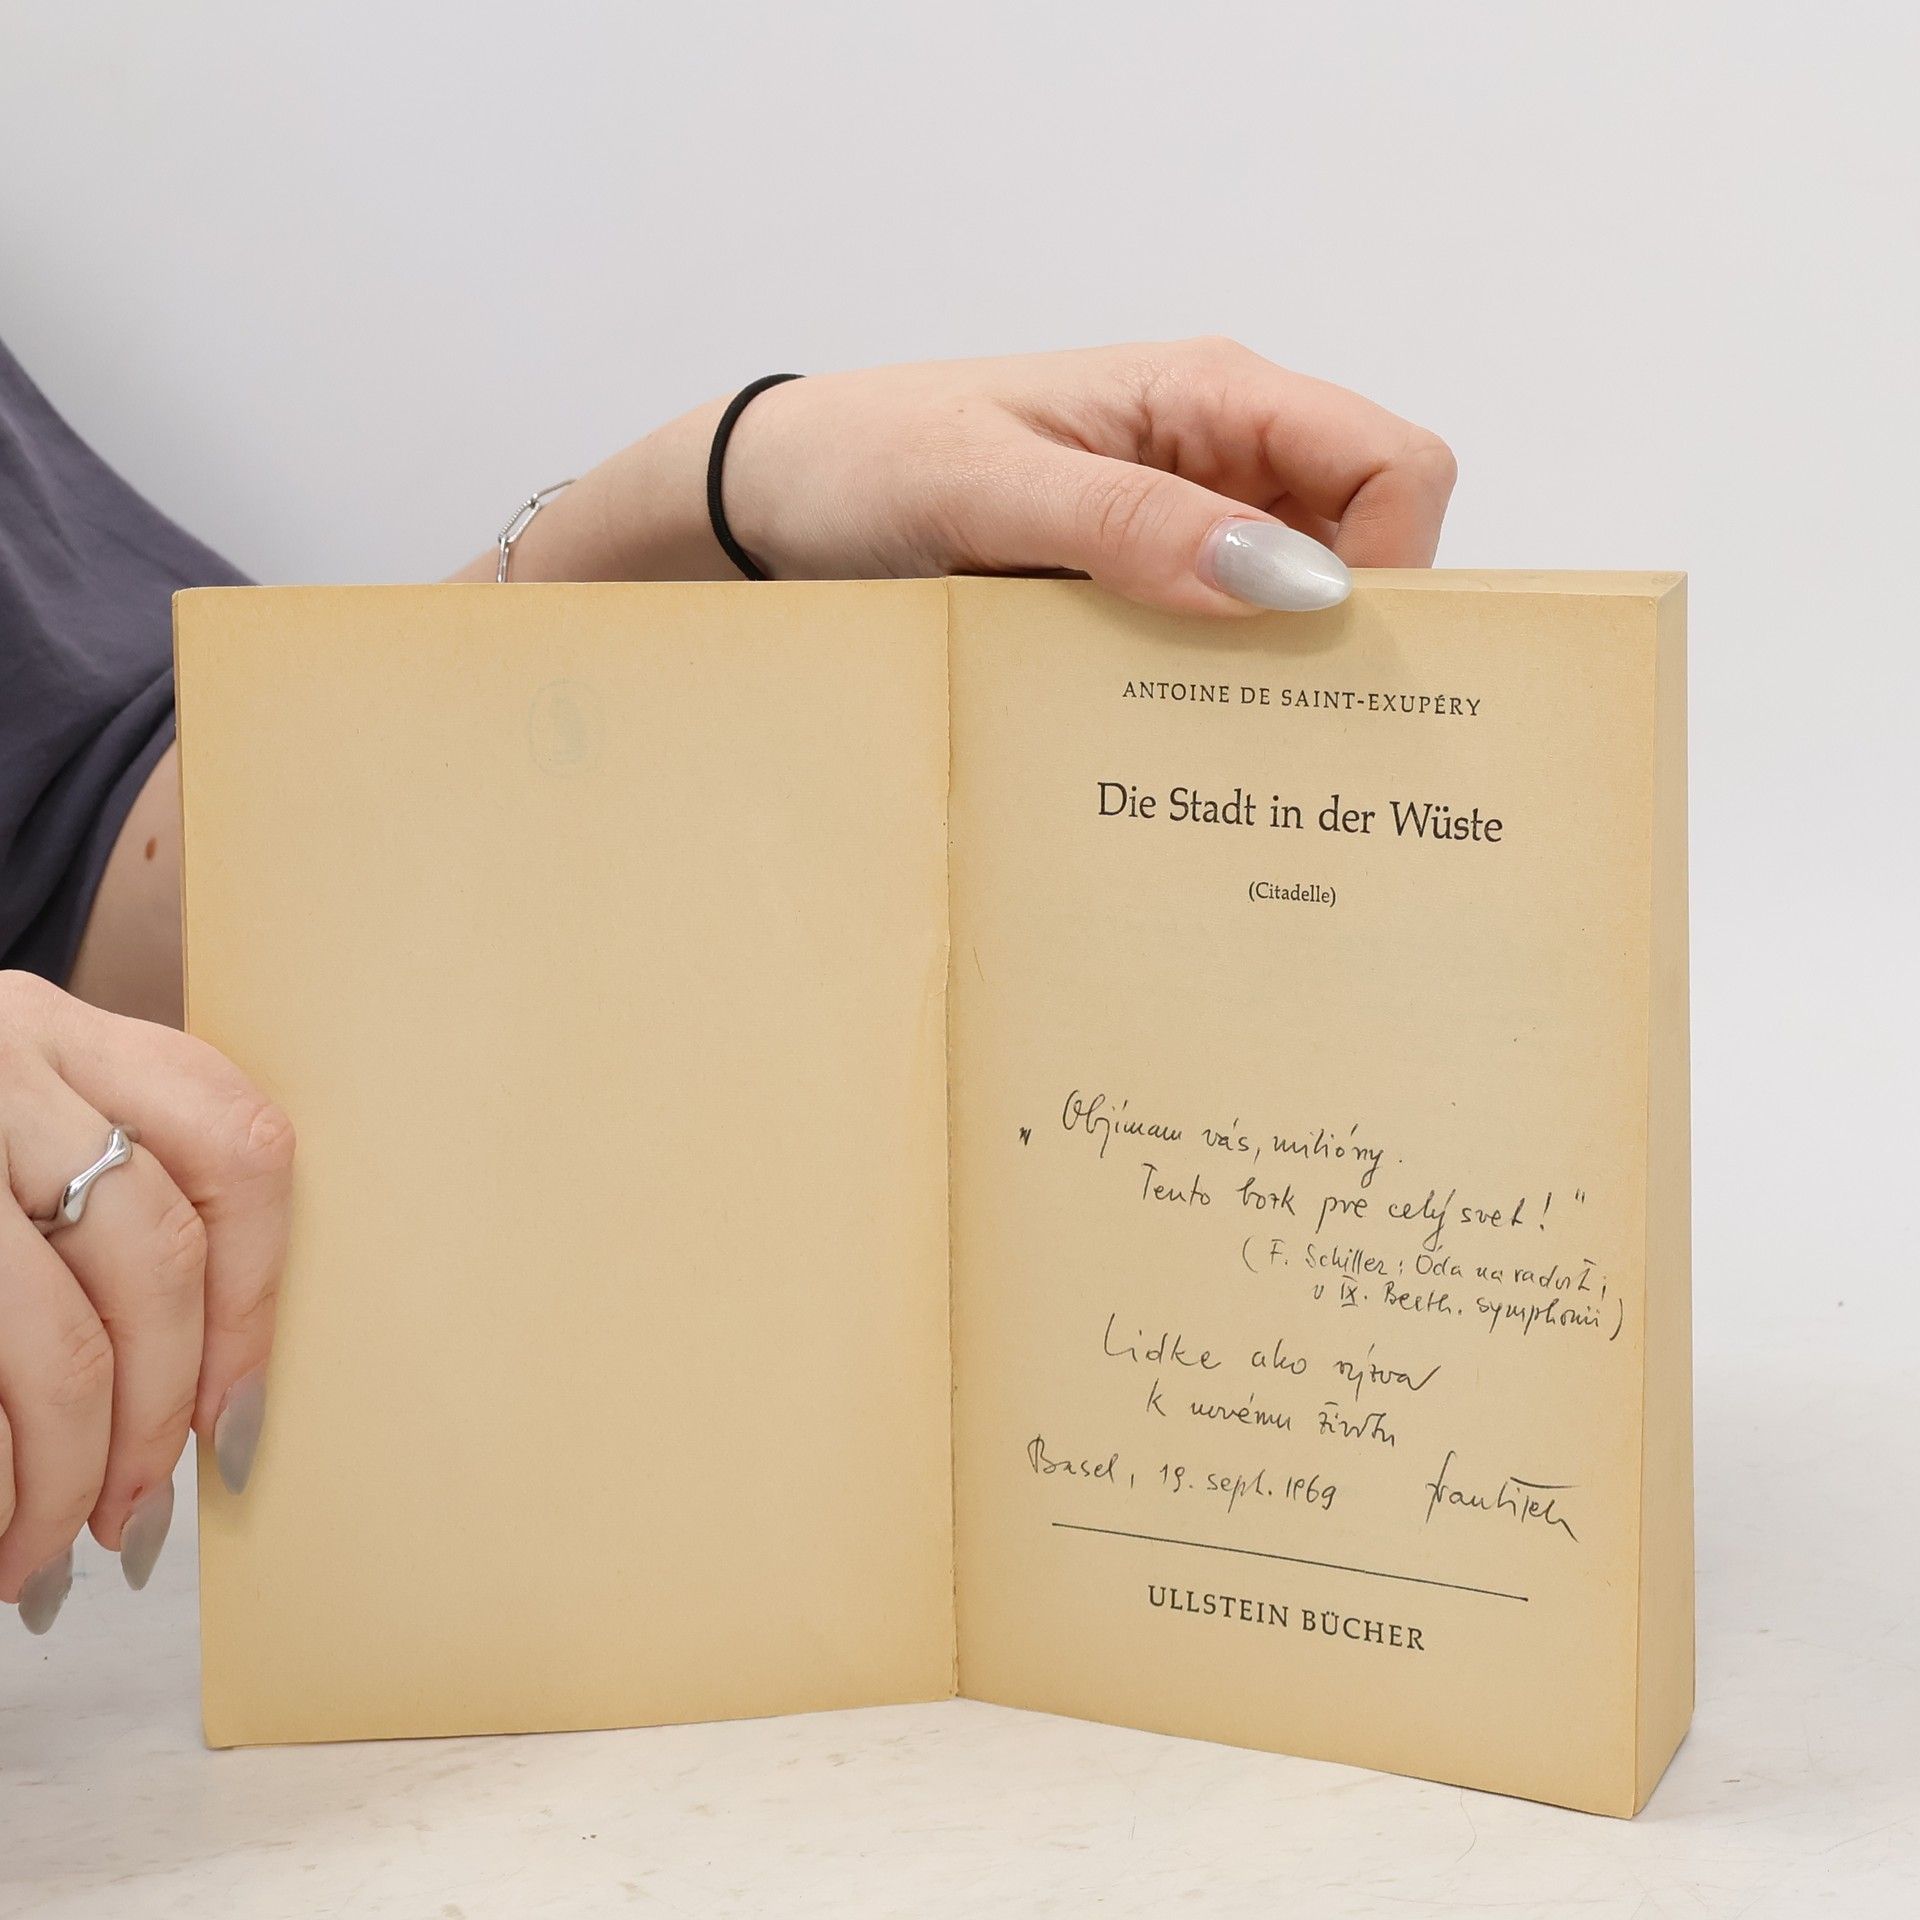 ANTOINE DE SAINT-EXUPÉRY
Die Stadt in der Wüste
(Citadelle)
„Objímam vás, milióny.
Tento bozk pre celý svet!"
(F. Schiller: Óda na radosť;
v IX. Beeth. symphonii)
Lidke ako výzva
k novému životu
Basel, 19. sept. 1969 František
ULLSTEIN BÜCHER